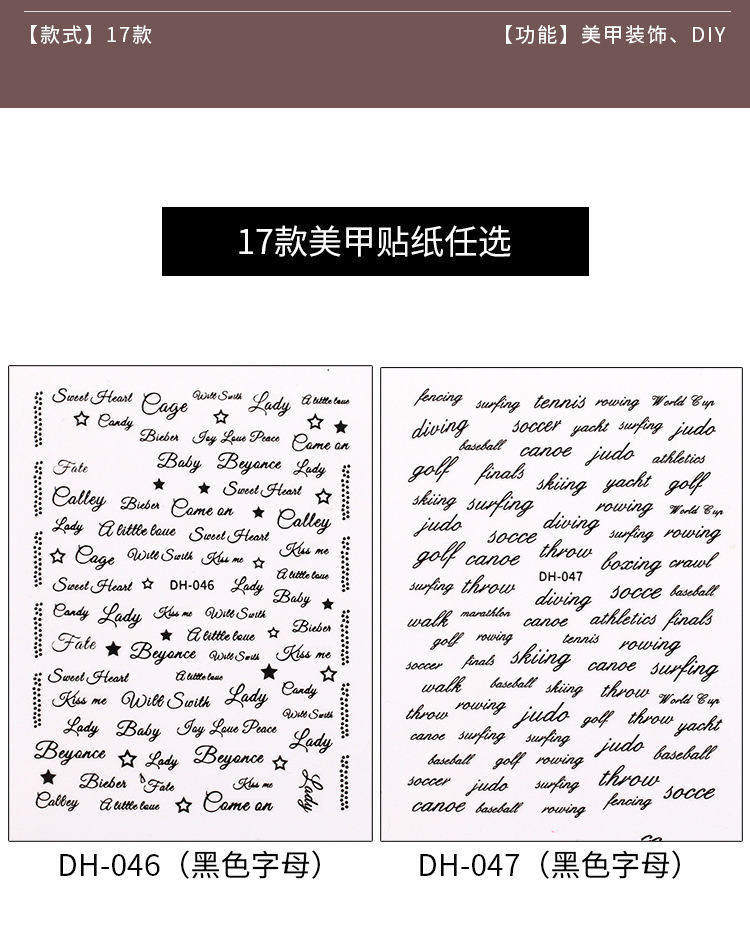 【款式】17款
【功能】美甲装饰、DIY
17款美甲贴纸任选
Sweet Heart Cage Will Swith Lady A little loue
Candy
Bieber Joy Loue Peace Come on
Fate Baby Beyonce Lady
Sweet Heart
Calley Bieber Come on Calley
Lady A little loue Sweet Heart
Cage Will Swith Kiss me Kiss me
A little loue
Sweet Heart DH-046 Lady Baby
Candy Lady Kiss me Will Swith
Bieber
Fate Beyonce A little loue Will Swith Kiss me
Sweet Heart A little loue Candy
Kiss me Will Swith Lady Will Swith
Lady Baby Joy Loue Peace Lady
Beyonce Lady Beyonce
Bieber Fate Kiss me Lady
Calley A little loue Come on
fencing surfing tennis rowing World Cup
diving soccer yacht surfing judo
baseball canoe judo athletics
golf finals skiing yacht golf
skiing surfing rowing World Cup
judo socce diving surfing rowing
golf canoe throw boxing crawl
surfing throw DH-047 diving socce baseball
walk marathlon canoe athletics finals
golf rowing tennis rowing
soccer finals skiing canoe surfing
walk baseball skiing throw World Cup
throw rowing judo golf throw yacht
canoe surfing surfing judo baseball
baseball golf rowing
soccer judo surfing throw socce
canoe baseball rowing fencing
DH-046（黑色字母）
DH-047（黑色字母）